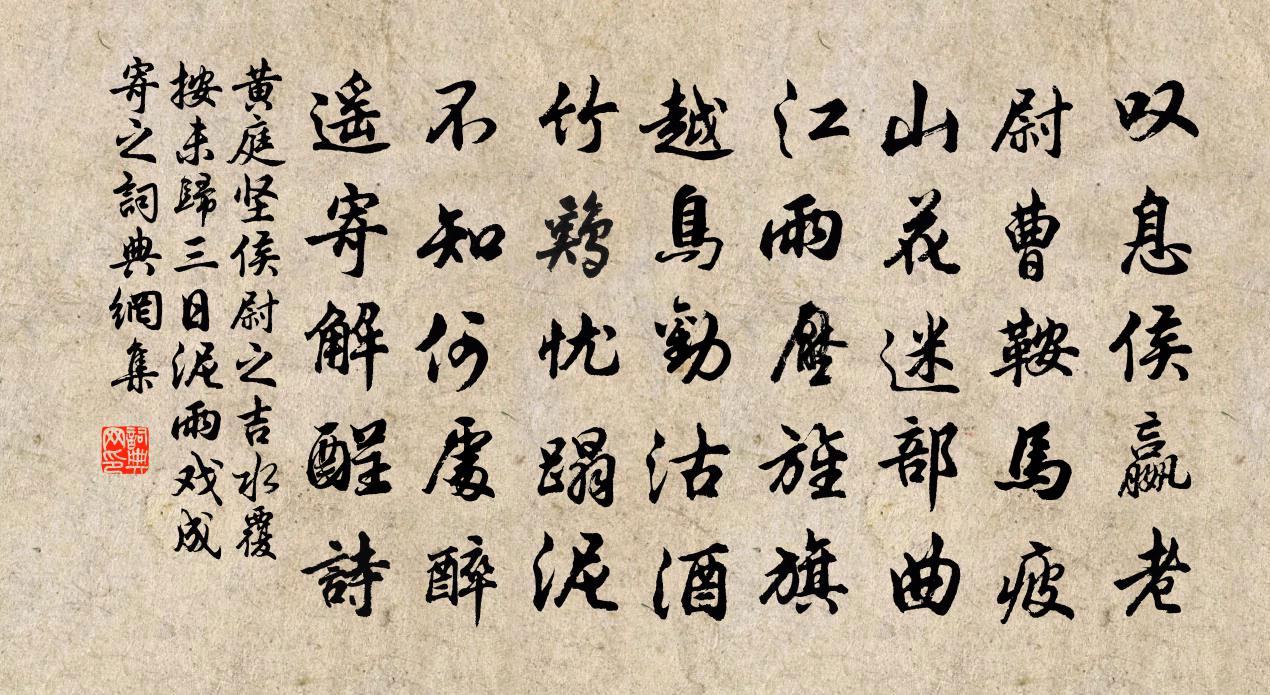 叹息侯嬴老
尉曹鞍馬疲
山花迷部曲
江雨壓旌旗
越鳥勸沽酒
竹鷄忧蹋泥
不知何處醉
遥寄解酲詩
黄庭坚侯尉之吉水覆
按未歸三日泥雨戏成
寄之詞典網集
詞典网印